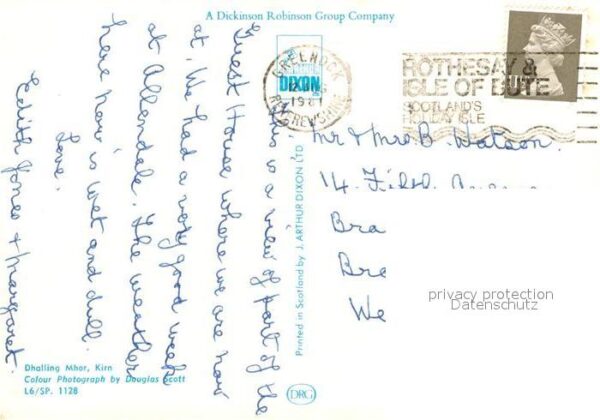 A Dickinson Robinson Group Company
This is a view of part of the
Guest House where we are now
at. We had a very good week
at Allendale. The weather
here now is wet and dull.
Love.
Edith Jones & Margaret.
Dhalling Mhor, Kirn
Colour Photograph by Douglas Scott
L6/SP. 1128
Printed in Scotland by J. ARTHUR DIXON LTD.
DIXON
DRG
GREENOCK
1981
RENFREWSHIRE
ROTHESAY &
ISLE OF BUTE
SCOTLAND'S
HOLIDAY ISLE
Mr & Mrs B. Watson.
14. Fifth Avenue
Bra
Bre
We
privacy protection
Datenschutz